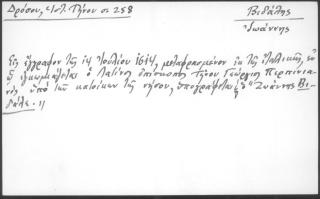 Δρόσου, Ἱστ. Τήνου σ. 258
Βιδάλης
Ἰωάννης
Εἰς ἔγγραφον τῆς 14 Ἰουλίου 1614, μεταφρασμένον ἐκ τῆς ἰταλικῆς, ἐν
ᾧ ἐγκωμιάζεται ὁ Λατῖνος ἐπίσκοπος Τήνου Γεώργιος Περπινιά-
νος ὑπὸ τῶν κατοίκων τῆς νήσου, ὑπογράφεται ὁ "Ἰωάννης Βι-
δάλης."